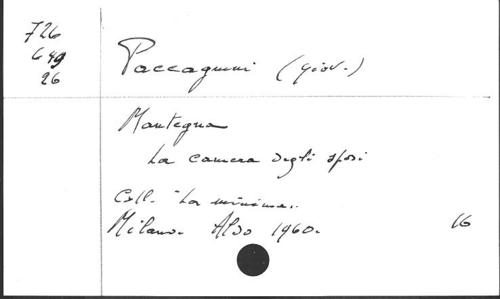 726
649
26
Paccagnini (Giov.)
Mantegna
La camera degli sposi
Coll. "La minima"
Milano. Aldo 1960.
16